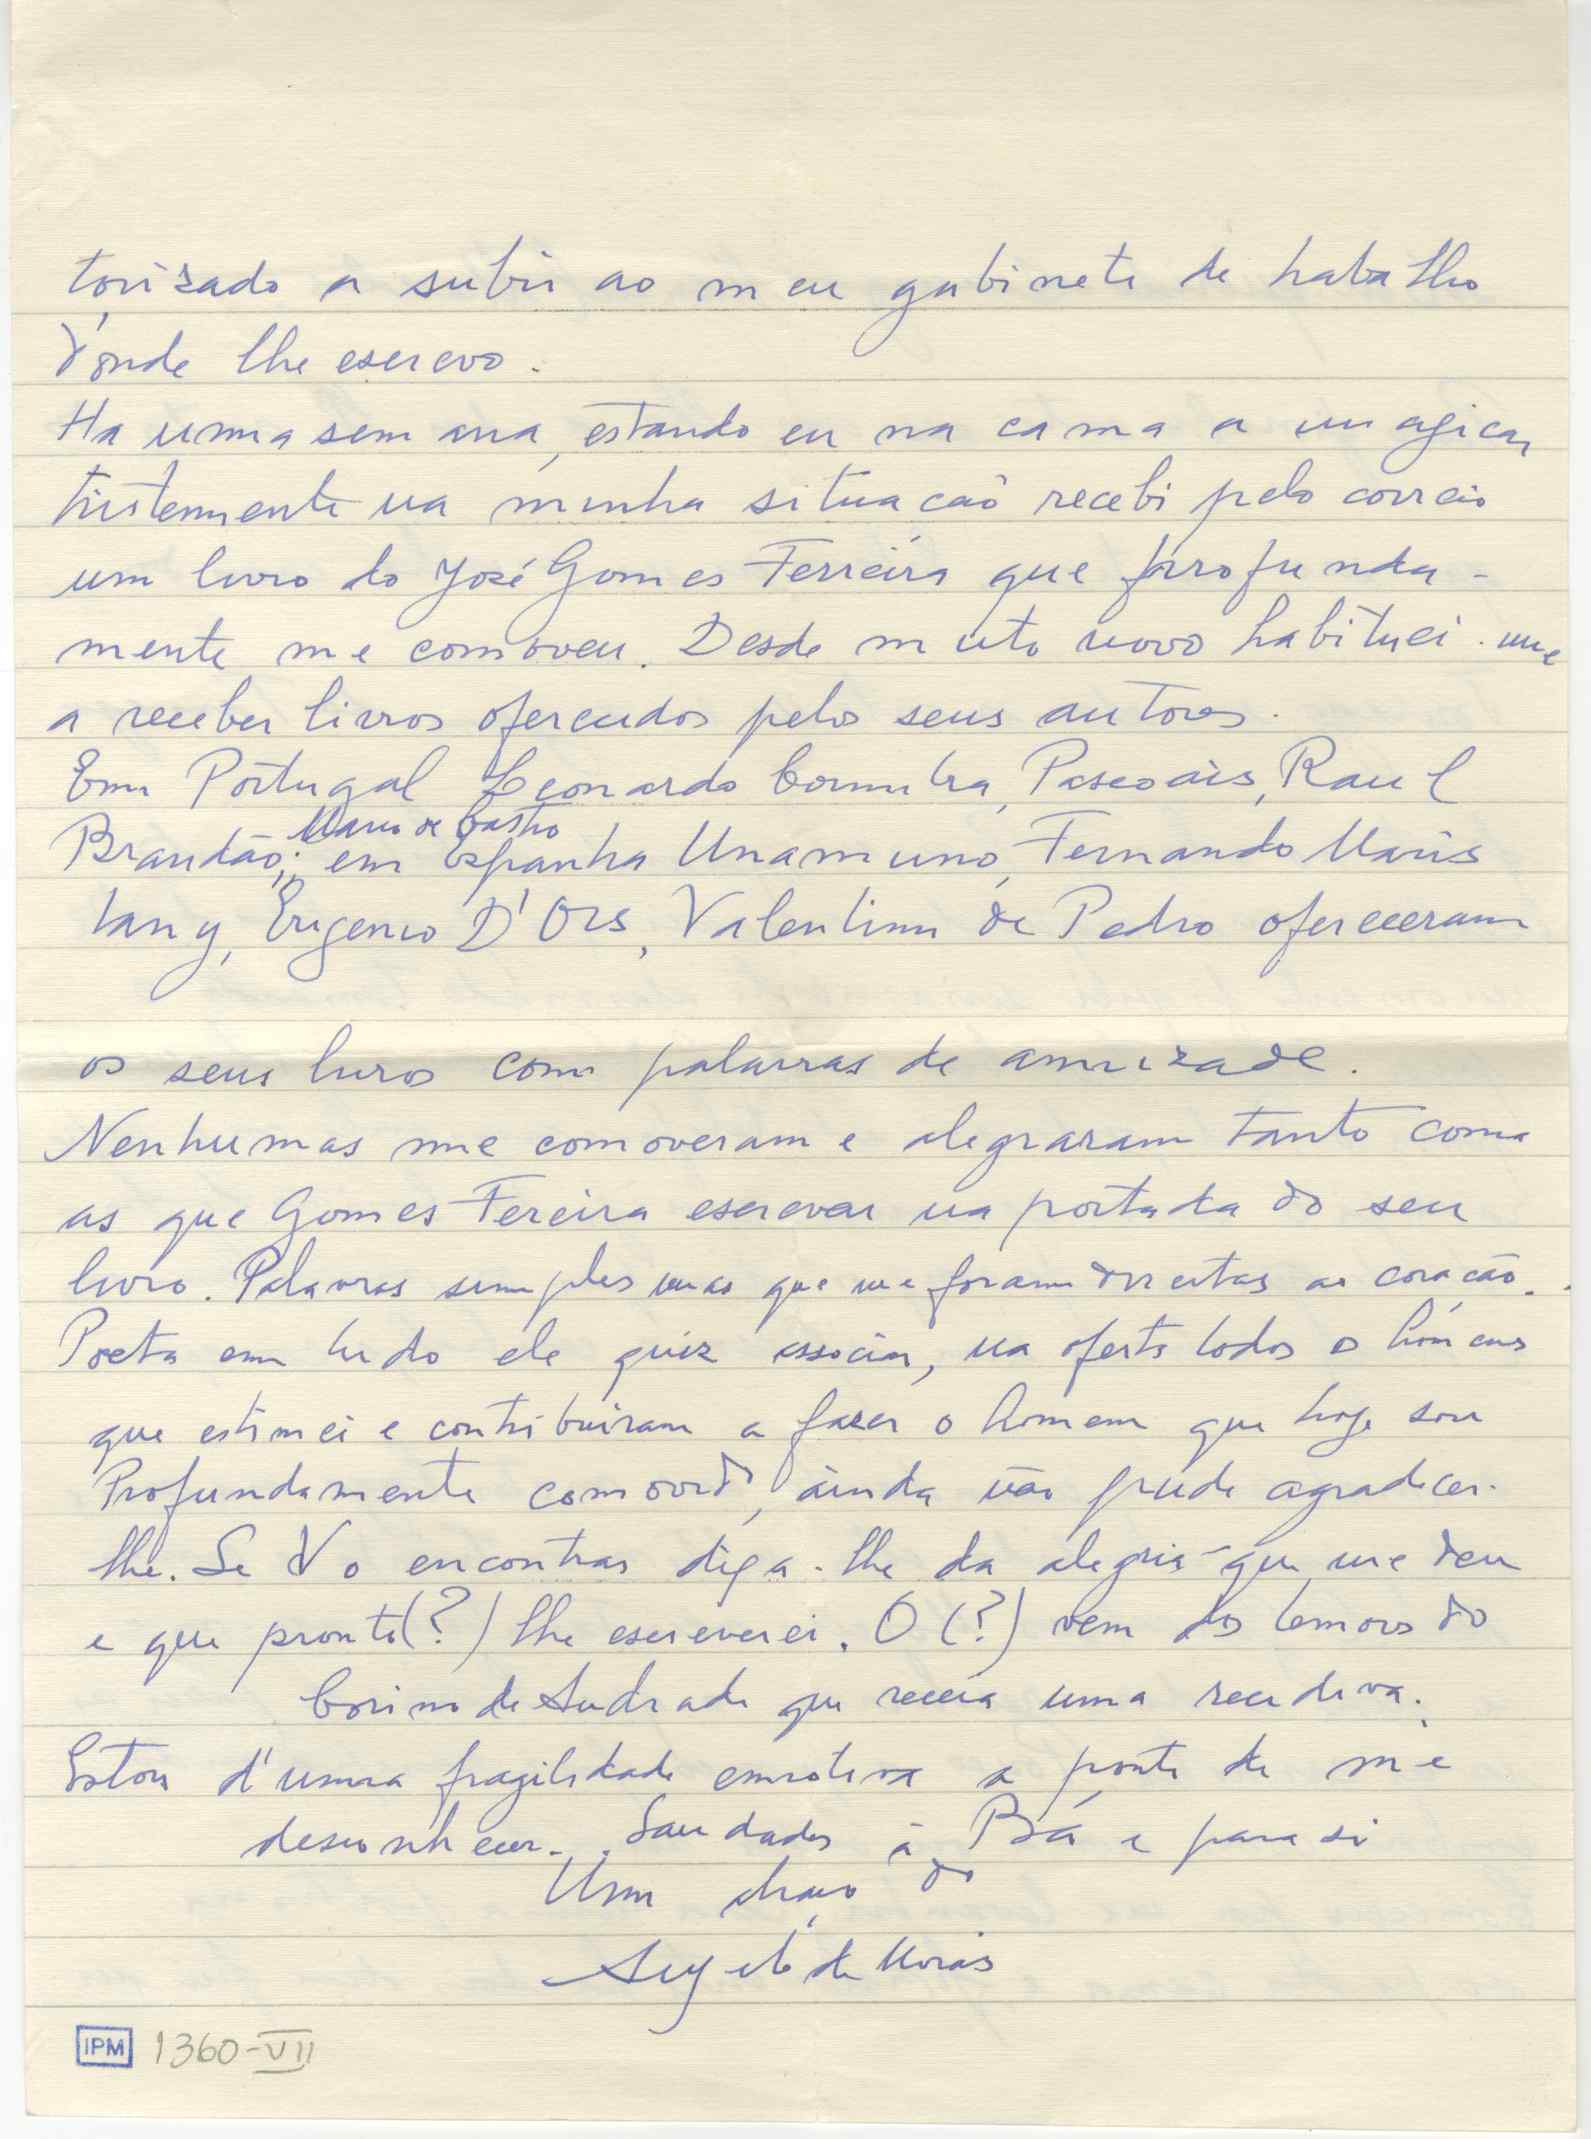 torizado a subir ao meu gabinete de trabalho
d'onde lhe escrevo.
Ha uma semana, estando eu na cama a magicar
tristemente na minha situação recebi pelo correio
um livro do José Gomes Ferreira que profunda-
mente me comoveu. Desde muito novo habituei-me
a receber livros oferecidos pelos seus autores.
Em Portugal Leonardo Coimbra, Pascoais, Raul
Mario de Castro
Brandão; em Espanha Unamuno, Fernando Maris
tany, Eugenio D'Ors, Valentim de Pedro ofereceram
os seus livros com palavras de amizade.
Nenhumas me comoveram e alegraram tanto como
as que Gomes Fereira escreveu na portada do seu
livro. Palavras simples mas que me foram direitas ao coração.
Poeta em tudo ele quiz associar, na oferta todos os hómens
que estimei e contribuiram a fazer o homem que hoje sou
Profundamente comovido, ainda não pude agradecer-
lhe. Se V o encontrar diga-lhe da alegria que me deu
e que pronto(?) lhe escreverei. O (?) vem dos temores do
Corino de Andrade que receia uma recediva.
Estou d'uma fragilidade emotiva a ponto de me
desconhecer. Saudades á Bá e para si
Um abraço do
Angelo de Morais
IPM 1360-VII